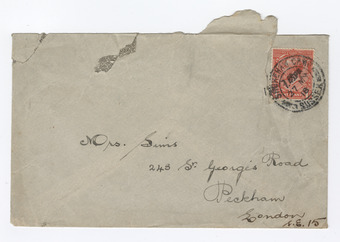 Mrs. Sims
243 St. George's Road
Peckham
London
S.E. 15